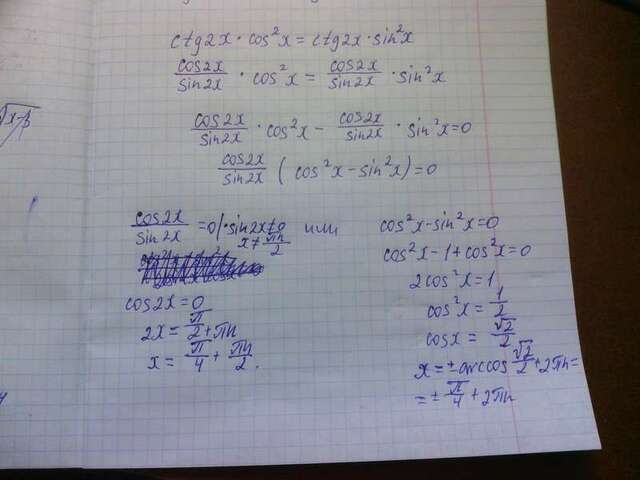 ctg2x · cos²x = ctg2x · sin²x
cos2x/sin2x · cos²x = cos2x/sin2x · sin²x
√x-
cos2x/sin2x · cos²x - cos2x/sin2x · sin²x=0
cos2x/sin2x ( cos²x - sin²x)=0
cos2x/sin2x =0 | · sin2x≠0 или
x≠ πn/2
cos2x=0
2x= π/2 +πn
x= π/4 + πn/2.
cos²x-sin²x=0
cos²x-1+cos²x=0
2cos²x=1
cos²x= 1/2
cosx= √2/2
x=±arccos √2/2 +2πn=
=± π/4 +2πn